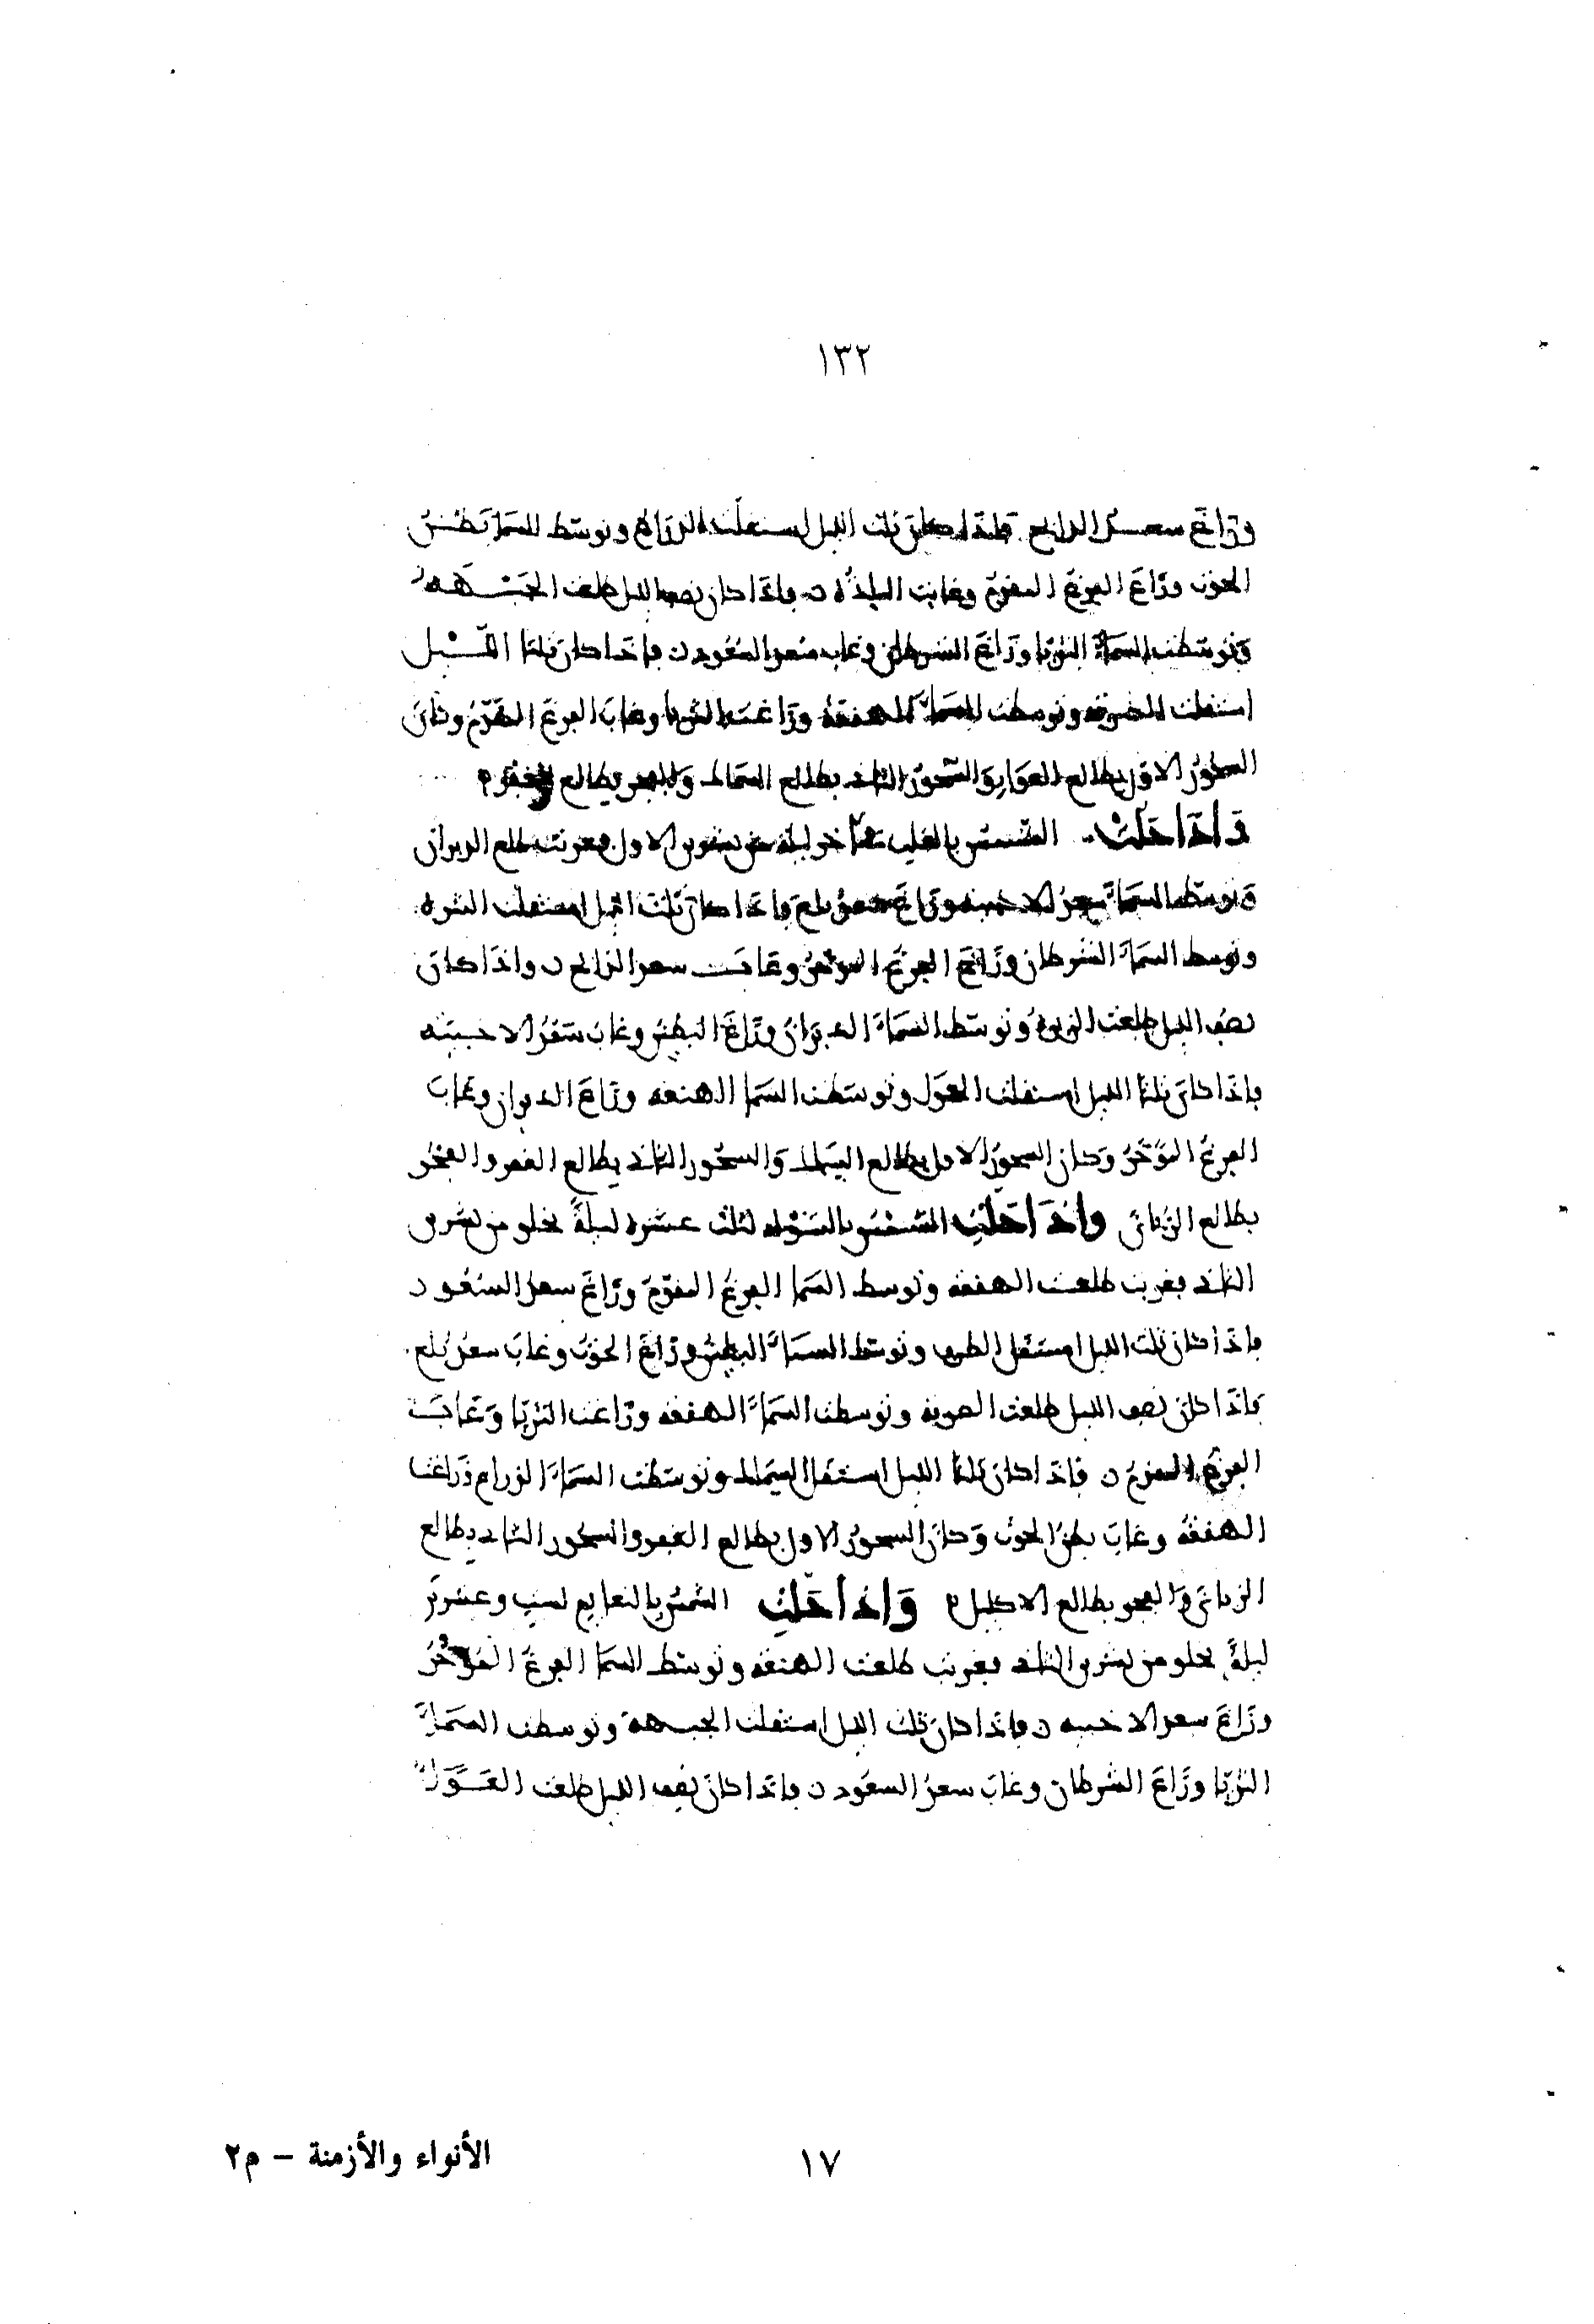 ١٣٢
وزاغ سعد الذابح فإذا كان ثلث الليل استقلت الذراع وتوسط السما بطن
الحوت وزاغ الفرغ المقدم وغابت البلدة فإذا كان نصف الليل طلعت الجبهة
وتوسطت السماء الثريا وزاغ الشرطان وغاب سعد السعود فإذا كان ثلثا الليل
استقلت الصرفة وتوسطت السماء الهقعة وزاغت الثريا وغاب الفرغ المقدم وكان
السحور الأول بطالع العوا والسحور الثاني بطالع السماك والفجر بطالع الغفر
وإذا حلت الشمس بالقلب آخر ليلة من تشرين الأول فغربت طلع الدبران
وتوسط السماء سعد الأخبية وزاغ سعد بلع فإذا كان ثلث الليل استقلت النثرة
وتوسط السماء الشرطان وزاغ الفرغ المؤخر وغاب سعد الذابح وإذا كان
نصف الليل طلعت الزبرة وتوسط السماء الدبران وزاغ البطين وغاب سعد الأخبية
فإذا كان ثلثا الليل استقلت العوا وتوسطت السما الهنعة وزاغ الدبران وغاب
الفرغ المؤخر وكان السحور الأول بطالع السماك والسحور الثاني بطالع الغفر والفجر
بطالع الزبانى وإذا حلت الشمس بالشولة لثلث عشرة ليلة تخلو من تشرين
الثاني فغربت طلعت الهقعة وتوسط السما الفرغ المقدم وزاغ سعد السعود
فإذا كان ثلث الليل استقل الطرف وتوسط السماء البطين وزاغ الحوت وغاب سعد بلع
فإذا كان نصف الليل طلعت الصرفة وتوسطت السماء الهقعة وزاغت الثريا وغاب
الفرغ المقدم فإذا كان ثلثا الليل استقل السماك وتوسطت السماء الذراع وزاغت
الهقعة وغاب بطن الحوت وكان السحور الأول بطالع الغفر والسحور الثاني بطالع
الزبانى والفجر بطالع الاكليل وإذا حلت الشمس بالنعايم لست وعشرين
ليلة تخلو من تشرين الثاني فغربت طلعت الهنعة وتوسط السما الفرغ المؤخر
وزاغ سعد الاخبية فإذا كان ثلث الليل استقلت الجبهة وتوسطت السماء
الثريا وزاغ الشرطان وغاب سعد السعود فإذا كان نصف الليل طلعت العوا
١٧
الأنواء والأزمنة – م٢